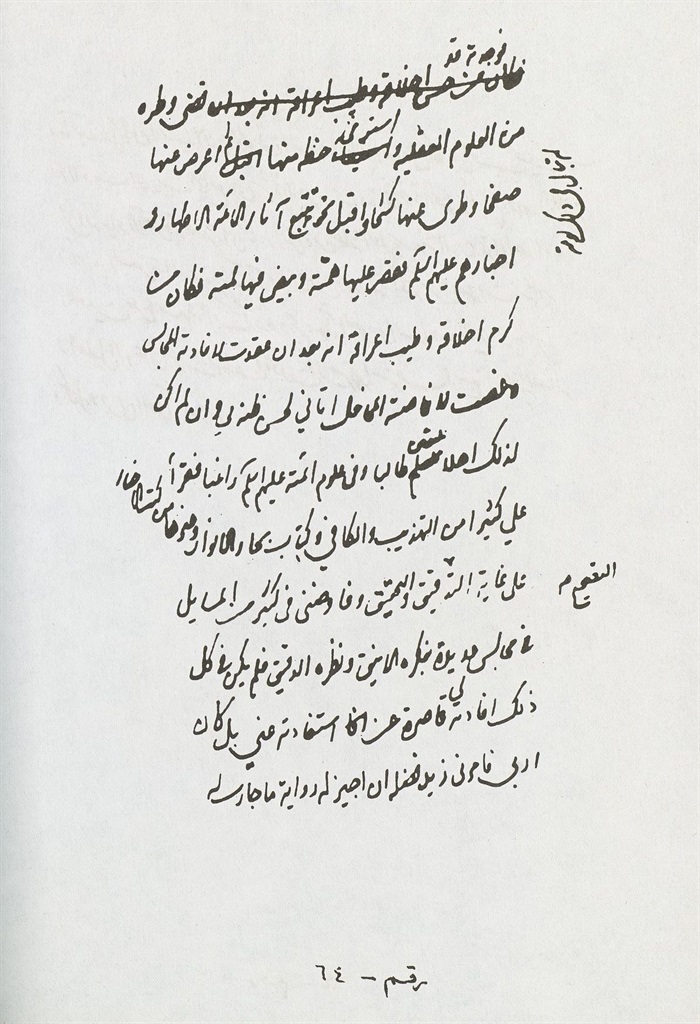 فوجدته قد
فكان من حسن اخلاقه وطيب اعراقه انه بعد ان قضى وطره
من العلوم العقلية و استوفى حظه منها اعرض عنها
صفحا وطوى عنها كشحا واقبل نحو تتبع آثار الائمة الاطهار و
اخبارهم عليهم السلم فقصر عليها همته وبيض فيها لمته فكان من
كرم اخلاقه وطيب اعراقه انه بعد ان عقدت لافادته المجالس
وغصت لافاضته المحافل اتاني لحسن ظنه بي و ان لم اكن
لذلك اهلا طالبا وفي علوم ائمته عليهم السلم راغبا فقرأ
علي كثيرا من التهذيب والكافي وكتاب بحار الانوار وغيرها من كتب الاخبار
على غاية التدقيق والتحقيق وفاوضني في كثير من المسايل
في مجالس عديدة بفكره الانيق ونظره الدقيق فلم يكن في كل
ذلك افادته لي قاصرة عن استفادته عني بل كان
اربى فامرني زيد فضله ان اجيز له رواية ما جازت له
رقم - ٦٤